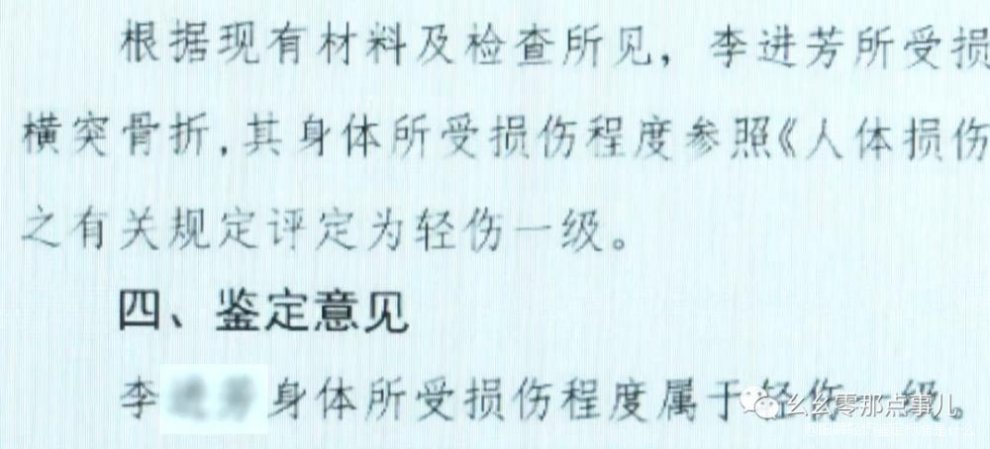 根据现有材料及检查所见，李进芳所受损
横突骨折，其身体所受损伤程度参照《人体损伤
之有关规定评定为轻伤一级。
四、鉴定意见
李 身体所受损伤程度属于轻伤一级。
幺幺零那点事儿